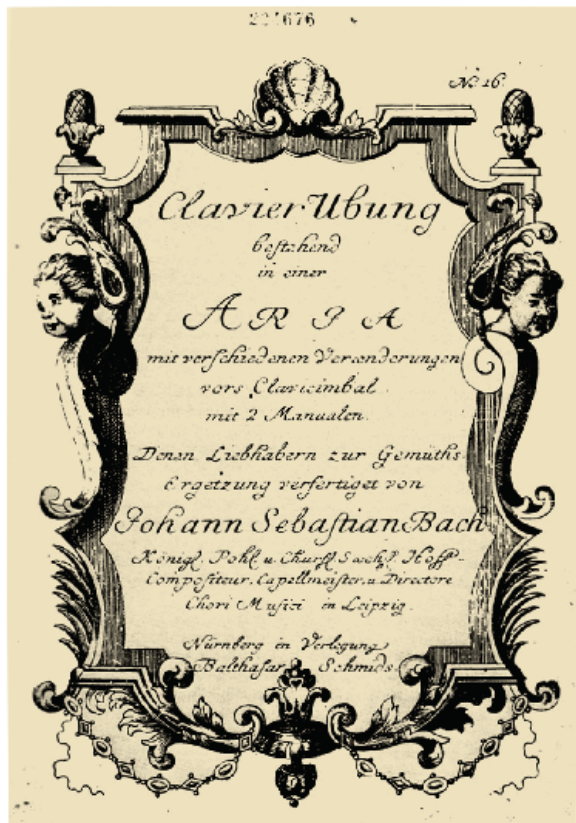 221676
No. 16.
Clavier Ubung
bestehend
in einer
ARIA
mit verschiedenen Verænderungen
vors Clavicimbal
mit 2 Manualen.
Denen Liebhabern zur Gemüths-
Ergetzung verfertiget von
Johann Sebastian Bach
Königl. Pohl. u. Churfl. Sæchs. Hoff-
Compositeur, Capellmeister, u. Directore
Chori Musici in Leipzig.
Nürnberg in Verlegung
Balthasar Schmids